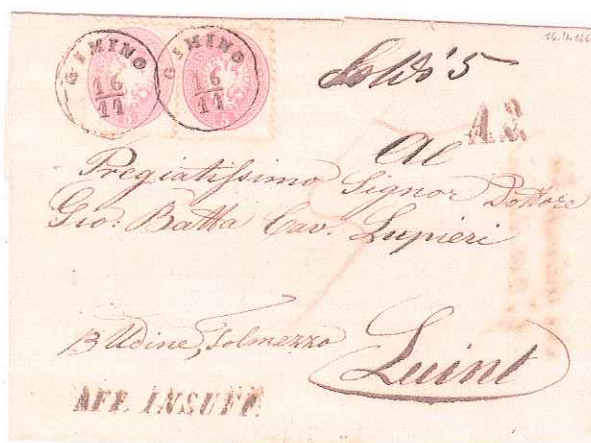 16.11.186
GIMINO 16/11
GIMINO 16/11
5
5
Soldi 5
A.S.
Al
Pregiatissimo Signor Dottore
Gio: Batta Cav. Lupieri
Udine, Tolmezzo
Luint
AFF. INSUFF.